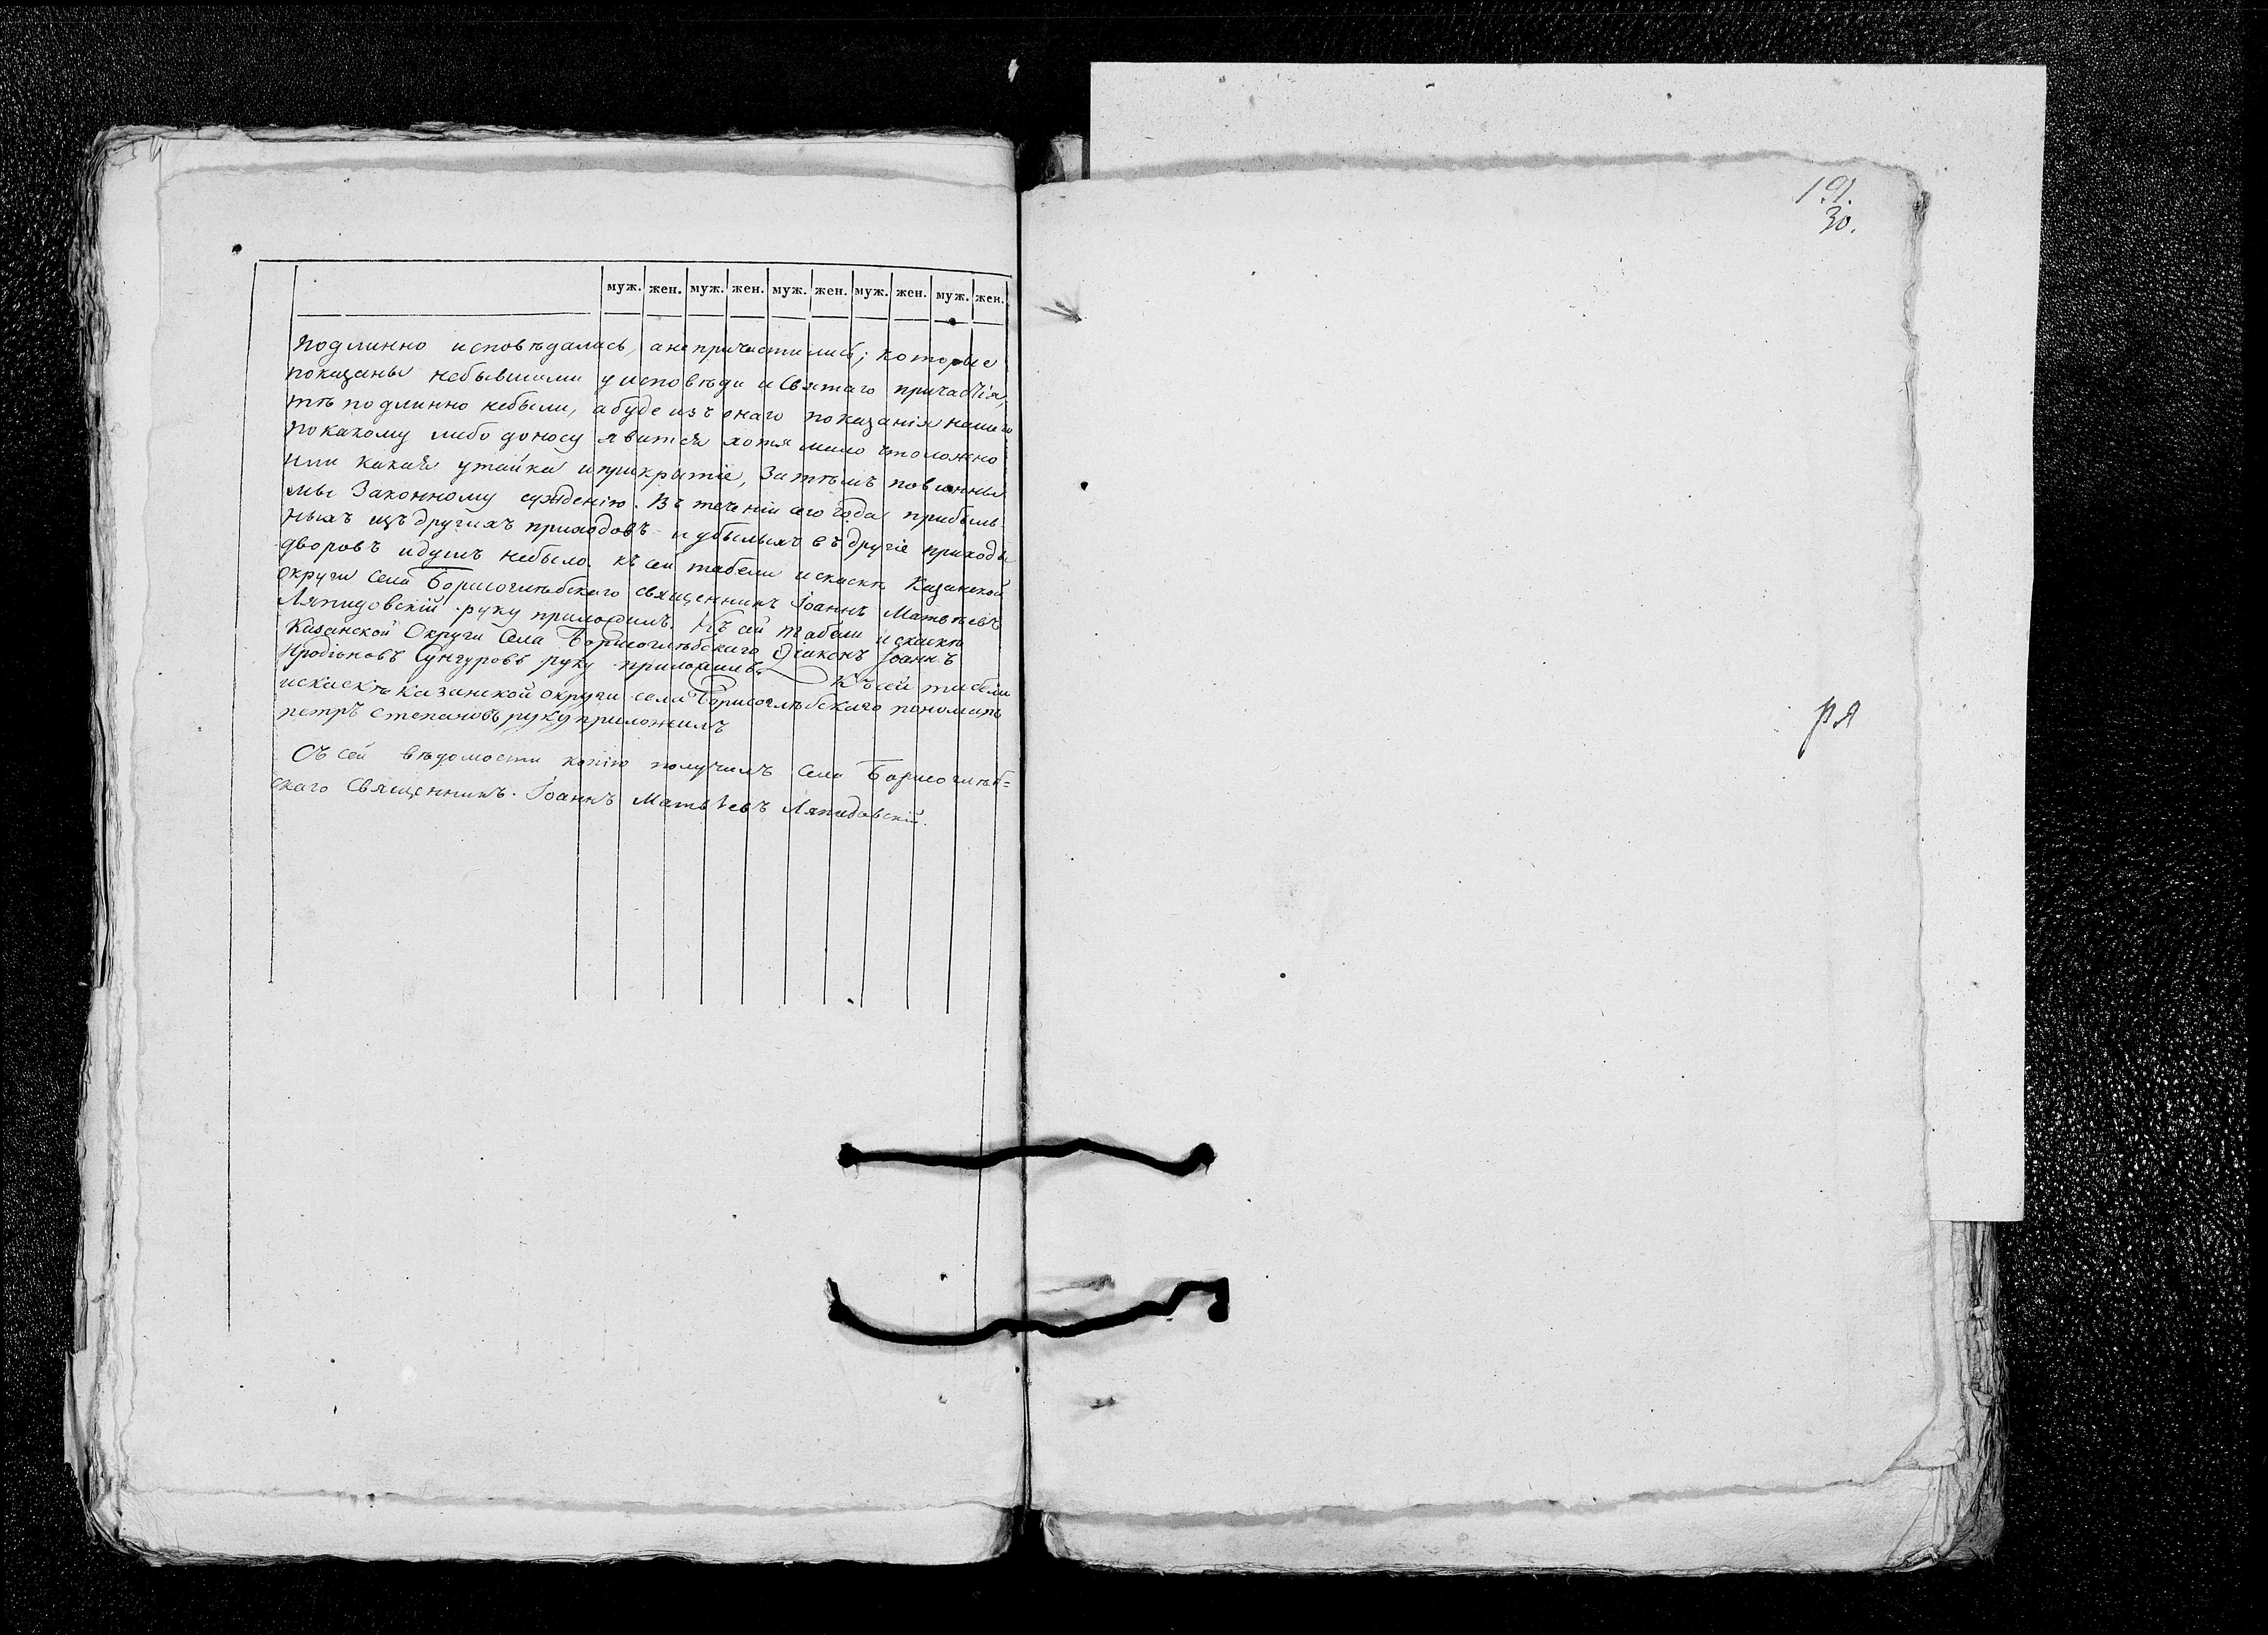 муж. жен. муж. жен. муж. жен. муж. жен. муж. жен.
подлинно исповѣдались, а не причастились; которые
показаны небывшими у исповѣди и Святаго причастія,
тѣ подлинно небыли, а буде изъ онаго показанія нашего
по какому либо доносу явится хотя мало что ложно
или какая утайка и прикрытіе, За тѣмъ повинны
мы Законному сужденію. Въ теченіи сего года прибыль
ныхъ изъ другихъ приходовъ и убылыхъ въ другіе приходы
дворовъ и душъ небыло. къ сей табели и скаскѣ Казанской
округи села Борисоглѣбскаго священникъ Іоаннъ Матвѣевъ
Ляпидовскій руку приложилъ. Къ сей табели и скаскѣ
Казанской Округи Села Борисоглѣбскаго Діаконъ Іоаннъ
Иродіоновъ Сунгуровъ руку приложилъ. Къ сей табели
и скаскѣ казанской округи села Борисоглѣбскаго пономарь
петръ степановъ руку приложилъ
Съ сей вѣдомости копію получилъ Села Борисоглѣб=
скаго Священникъ Іоаннъ Матвѣевъ Ляпидовскій.
191.
30.
ря